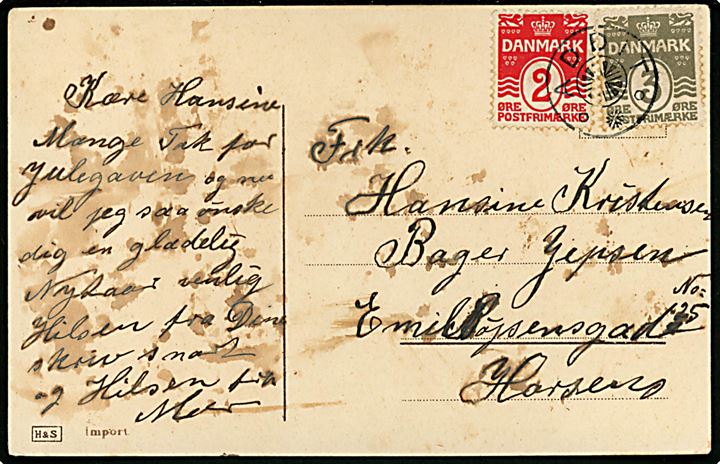 Kære Hansine
Mange Tak for
Julegaven og nu
vil jeg saa ønske
dig en glædelig
Nytaar venlig
Hilsen fra Dine
skriv snart
og Hilsen fra
Moer
H&S Import.
DANMARK
2
ØRE ØRE
POSTFRIMÆRKE
DANMARK
3
ØRE ØRE
POSTFRIMÆRKE
Frk.
Hansine Kristensen
Bager Jepsen
No.
Emil 25
Horsens